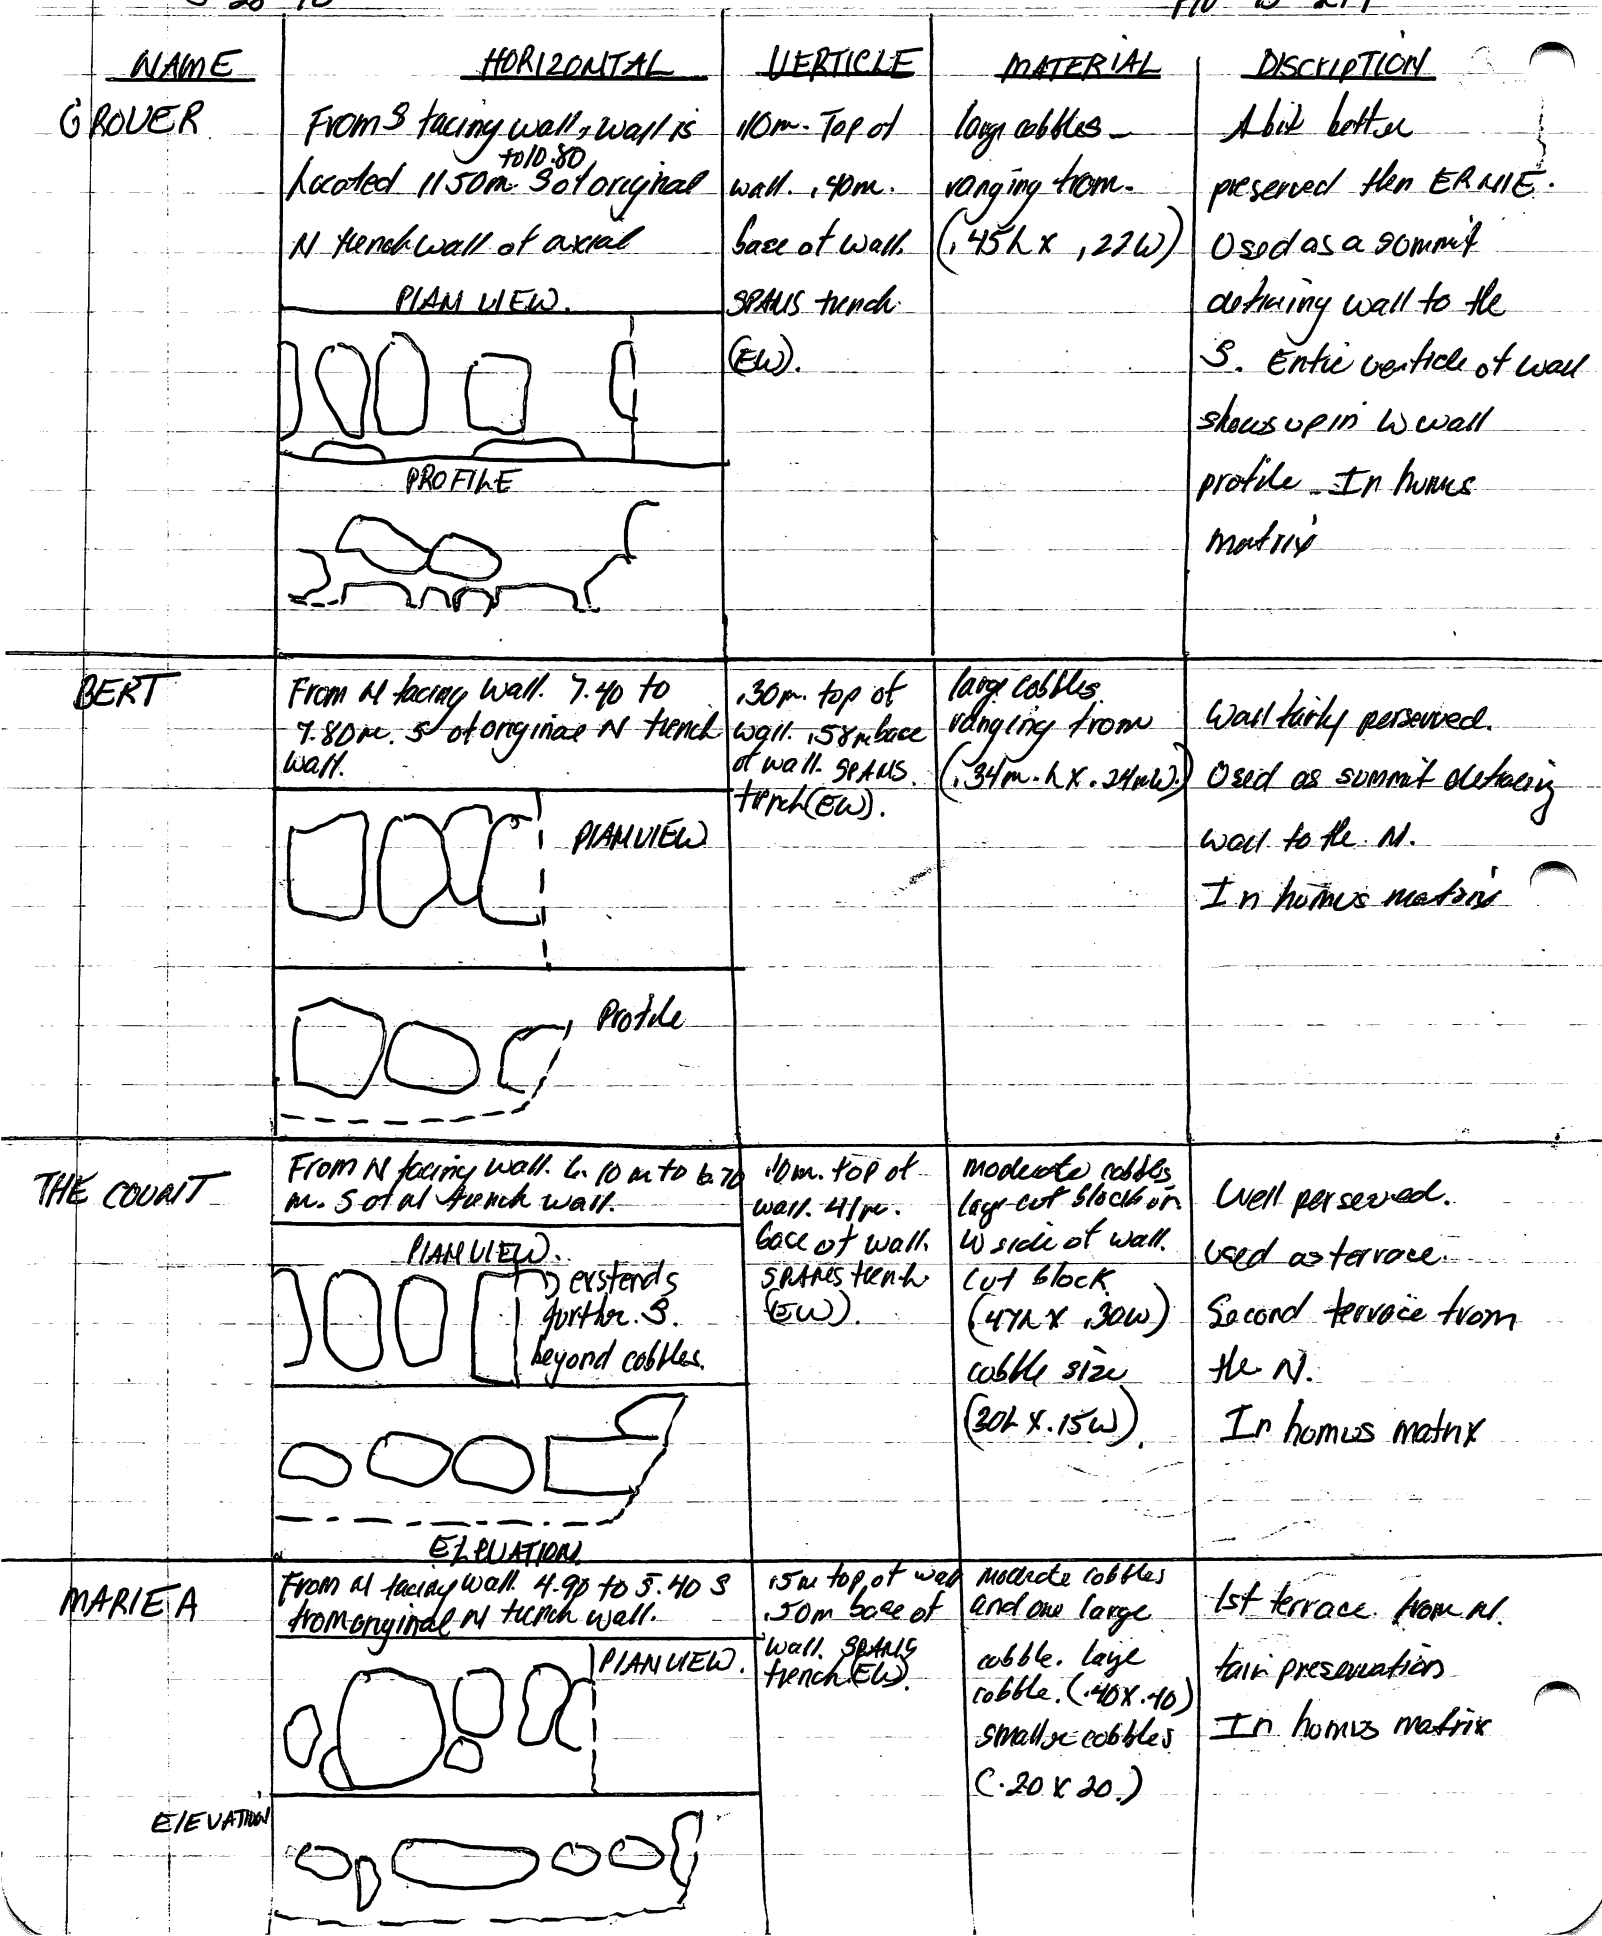 NAME HORIZONTAL VERTICLE MATERIAL DISCRIPTION
GROVER
From S facing wall, wall is
to 10.80
Located 11 50m. S of original
N trench wall of axial
PLAN VIEW.
PROFILE
.10m. Top of
wall. .40m.
base of wall.
SPANS trench
(EW).
large cobbles
ranging from
(.45L x .22W)
A bit better
preserved then ERNIE.
Used as a summit
defining wall to the
S. Entire verticle of wall
shows up in W wall
profile. In humus
matrix
BERT
From N facing wall. 7.40 to
7.80m. S of original N trench
wall.
PLAN VIEW
Profile
.30m. top of
wall. .58m base
of wall. SPANS
trench (EW).
large cobbles
ranging from
(.34m. L x .24mW.)
Wall fairly perserved.
Used as summit defining
wall to the N.
In humus matrix
THE COUNT
From N facing wall. 6.10m to 6.70
m. S of N trench wall.
PLAN VIEW.
exstends
further S.
beyond cobbles.
ELEVATION
.10m. top of
wall. 41m.
base of wall.
SPANS trench
(EW).
moderate cobbles
large cut block on
W side of wall.
cut block
(47L x .30W)
cobble size
(30L x .15W)
Well perserved.
used as terrace.
Second terrace from
the N.
In humus matrix
MARIE A
From N facing wall 4.90 to 5.40 S
from original N trench wall.
PLAN VIEW.
ELEVATION
.15m top of wall
.50m base of
wall. SPANS
trench (EW).
moderate cobbles
and one large
cobble. large
cobble. (.40x.40)
smaller cobbles
(.20 x 20.)
1st terrace from N.
fair preservation
In humus matrix